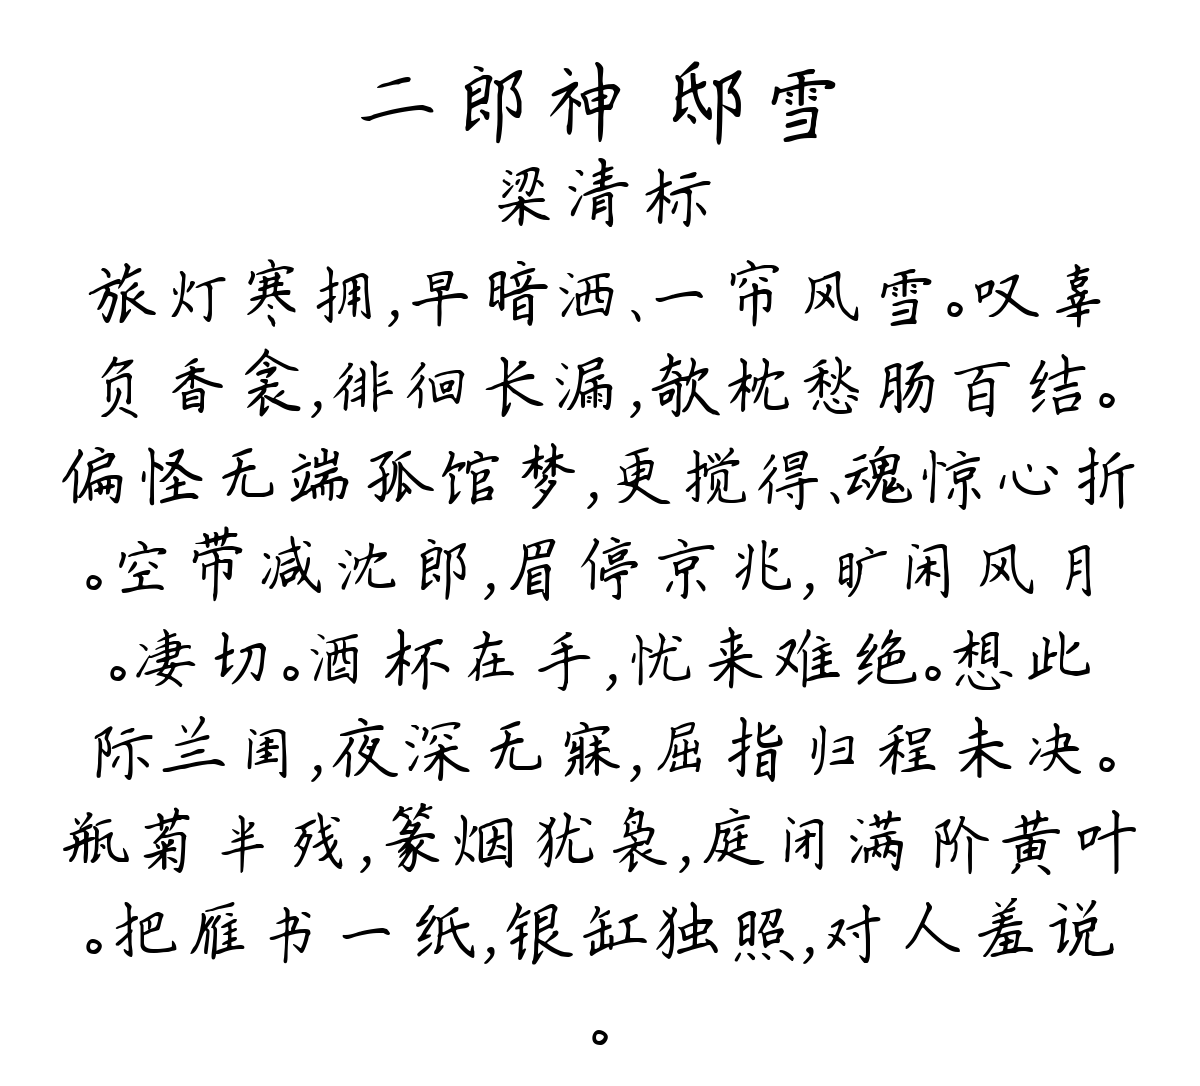 二郎神 邸雪
梁清标
旅灯寒拥,早暗洒、一帘风雪。叹辜
负香衾,徘徊长漏,欹枕愁肠百结。
偏怪无端孤馆梦,更搅得、魂惊心折
。空带减沈郎,眉停京兆,旷闲风月
。凄切。酒杯在手,忧来难绝。想此
际兰闺,夜深无寐,屈指归程未决。
瓶菊半残,篆烟犹袅,庭闭满阶黄叶
。把雁书一纸,银缸独照,对人羞说
。